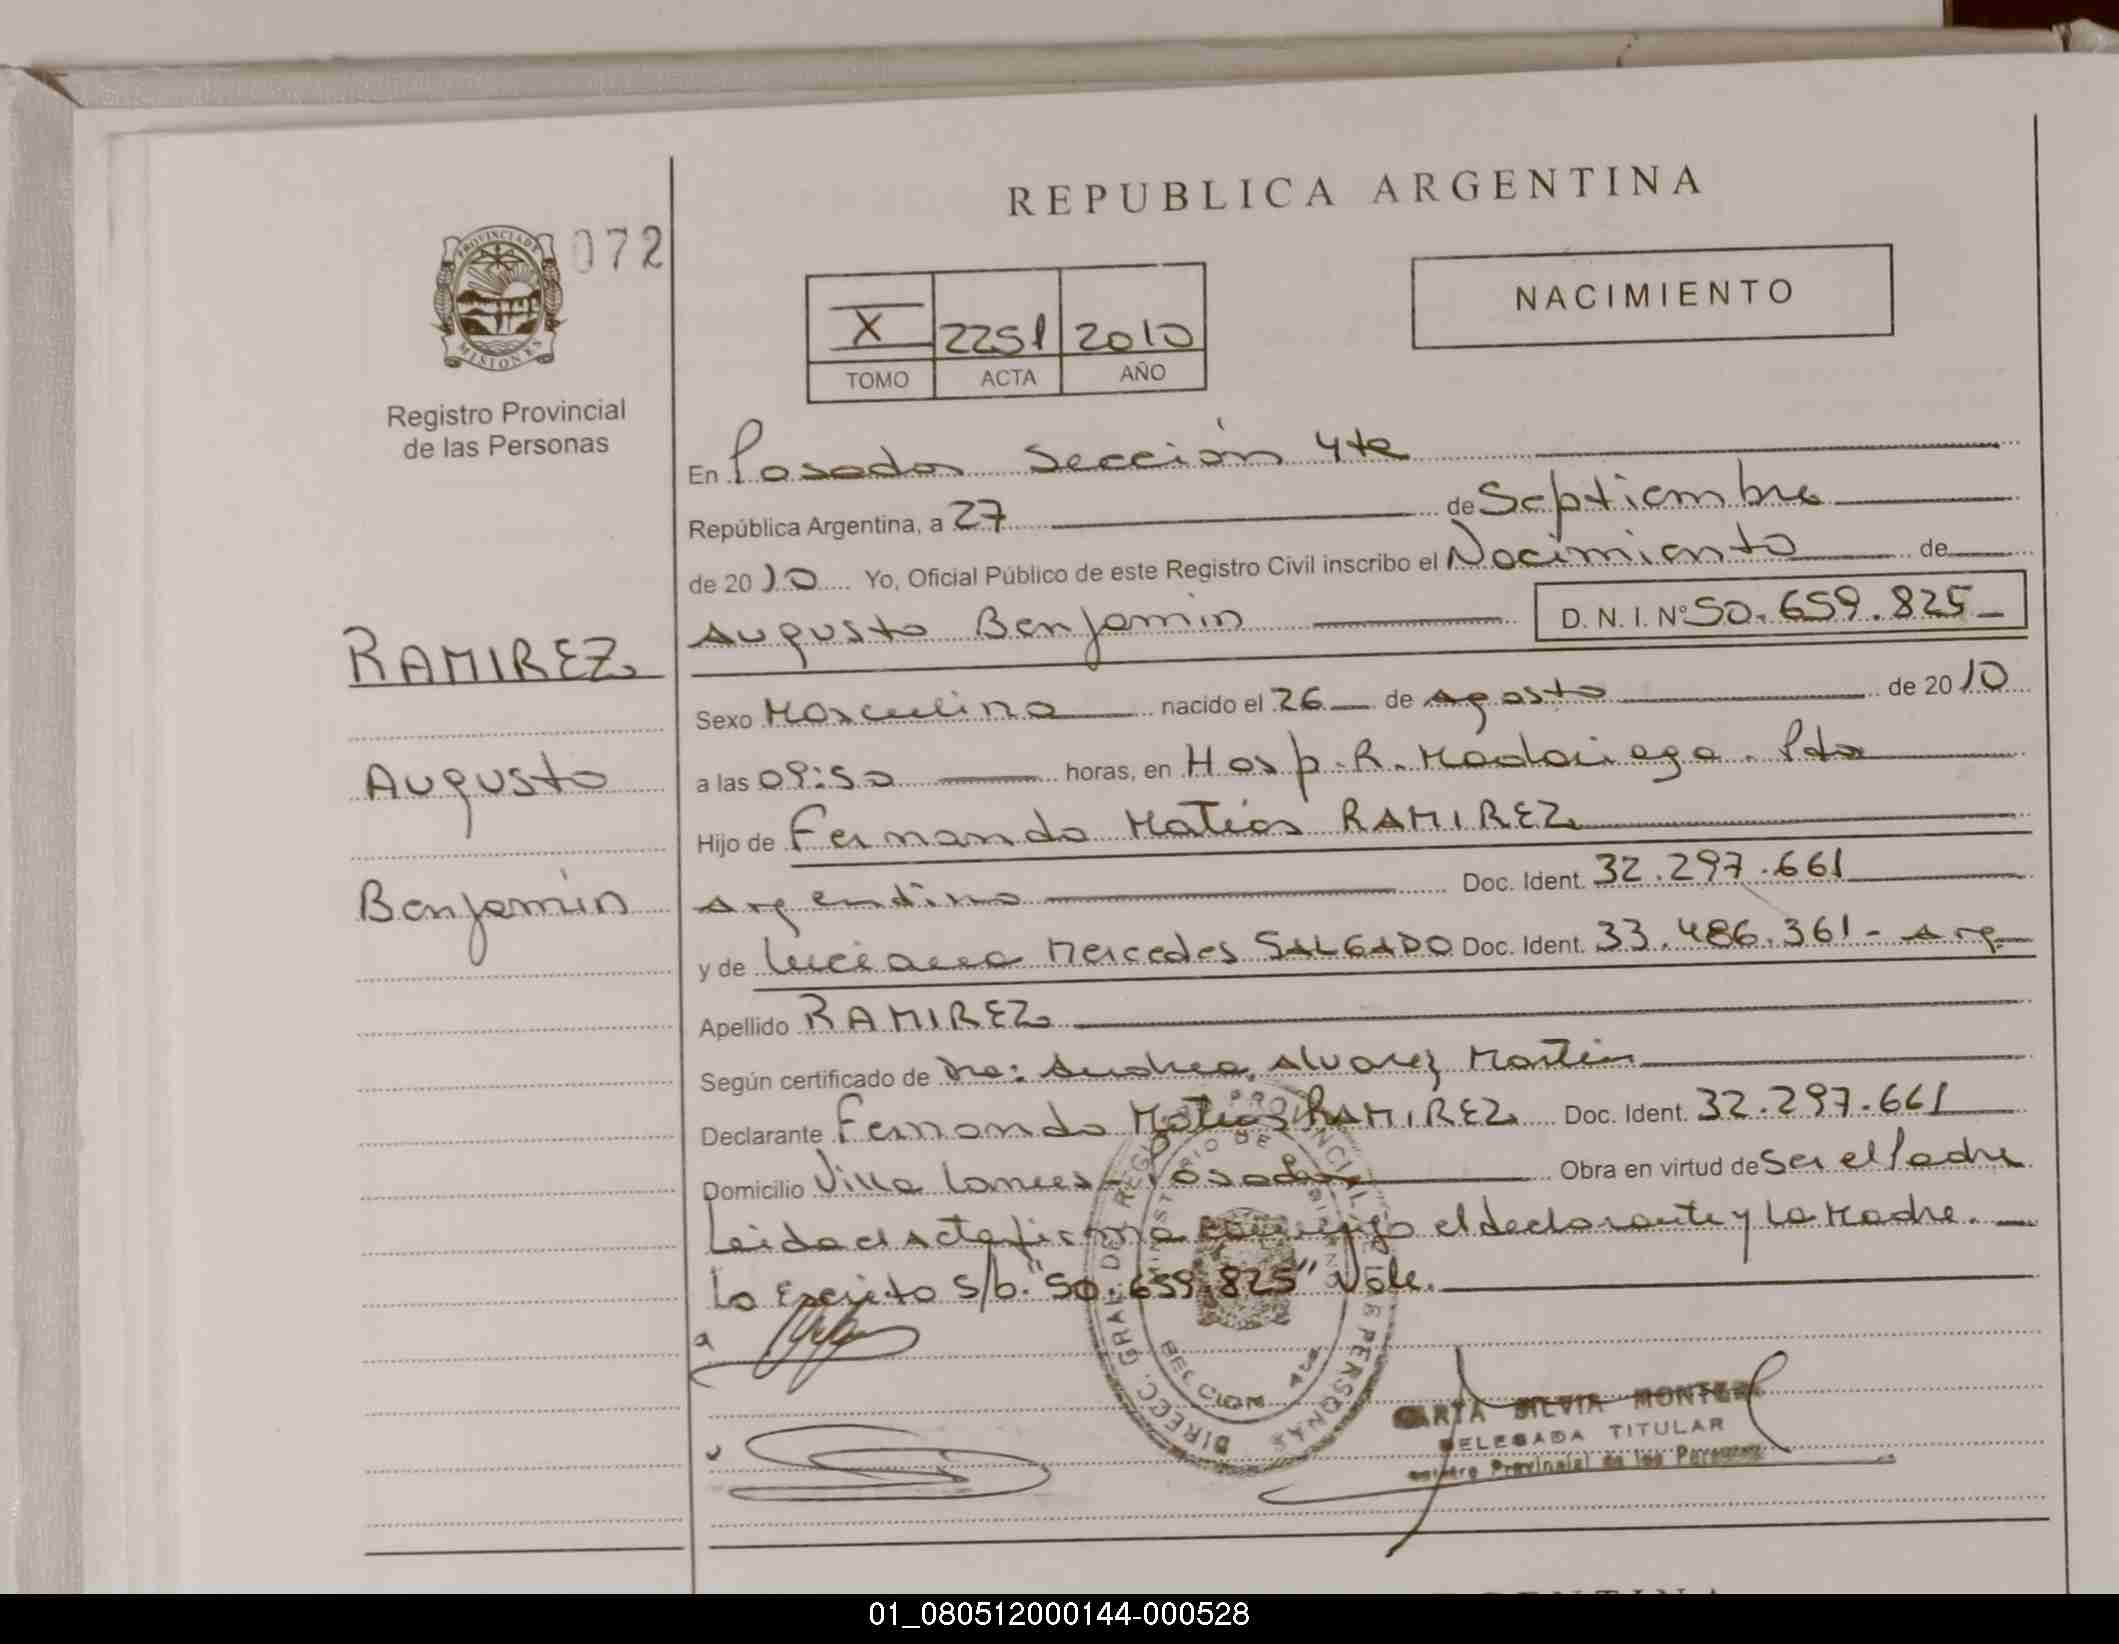 REPUBLICA ARGENTINA
PROVINCIA DE
MISIONES
072
Registro Provincial
de las Personas
X 2251 2010
TOMO ACTA AÑO
NACIMIENTO
RAMIREZ
Augusto
Benjamín
En Posadas Sección 4ta
República Argentina, a 27 de Septiembre
de 2010 Yo, Oficial Público de este Registro Civil inscribo el Nacimiento de
Augusto Benjamín D. N. I. Nº 50.659.825
Sexo Masculino nacido el 26 de Agosto de 2010
a las 09:50 horas, en Hosp. R. Madariaga. Pdas
Hijo de Fernando Matías RAMIREZ
Argentino Doc. Ident. 32.297.661
y de Luciana Mercedes SALGADO Doc. Ident. 33.486.361 - Arg
Apellido RAMIREZ
Según certificado de Dra: Andrea Alvarez Martín
Declarante Fernando Matías RAMIREZ Doc. Ident. 32.297.661
Domicilio Villa Lanees - Posadas Obra en virtud de Ser el Padre
Leida el Acta firma conmigo el declarante y La Madre.
Lo Escrito S/b. "50.659.825" Vale.
DELEGADA TITULAR
01_080512000144-000528